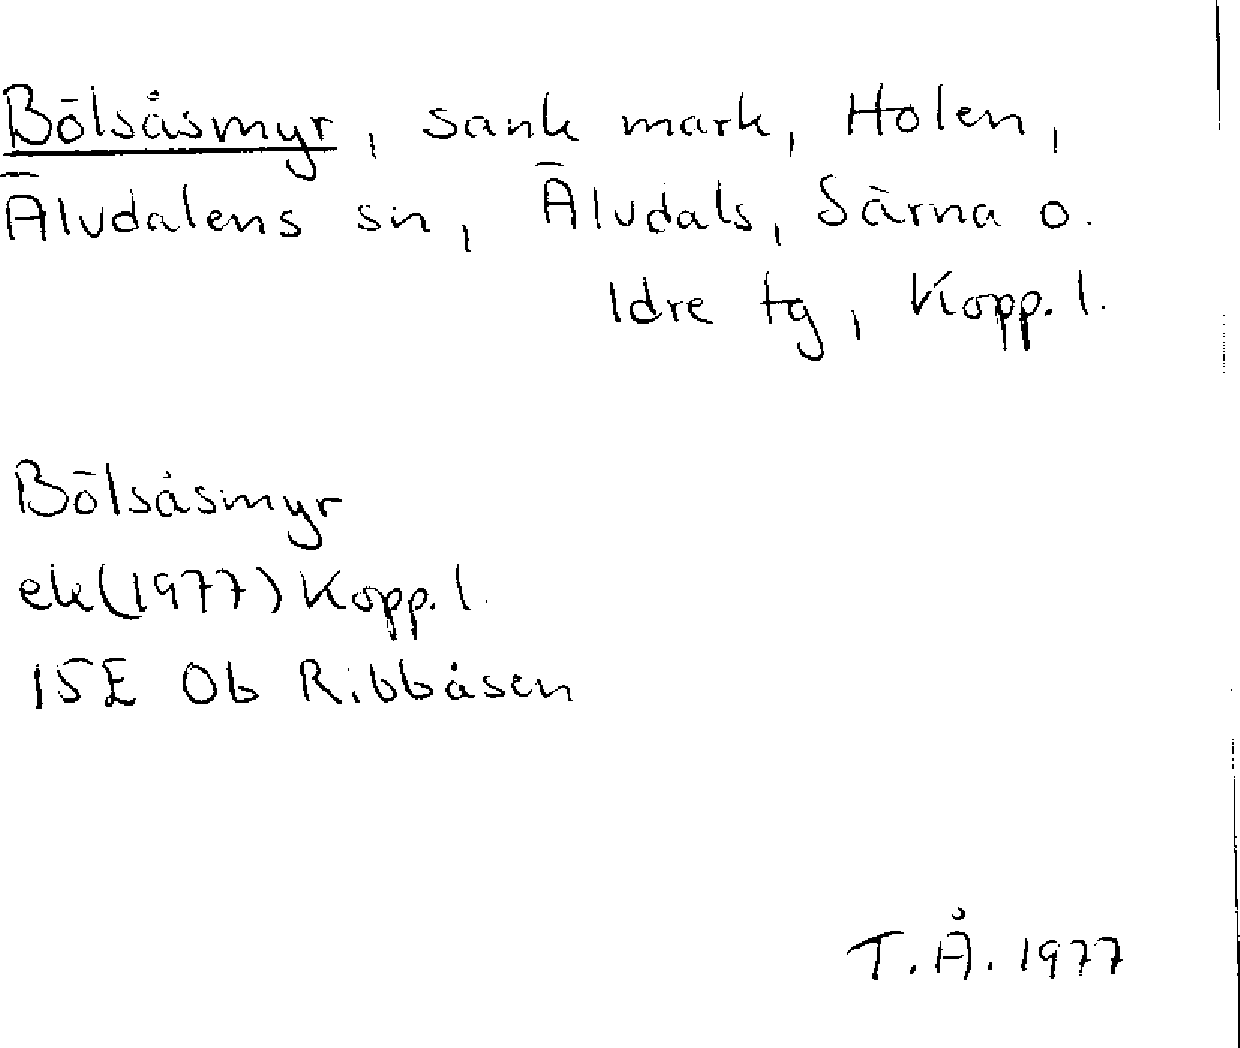 Bölsåsmyr, sank mark, Holen,
Älvdalens sn, Älvdals, Särna o.
Idre tg, Kopp. l.
Bölsåsmyr
ek(1977) Kopp. l.
15E 0b Ribbåsen
T.Å. 1977